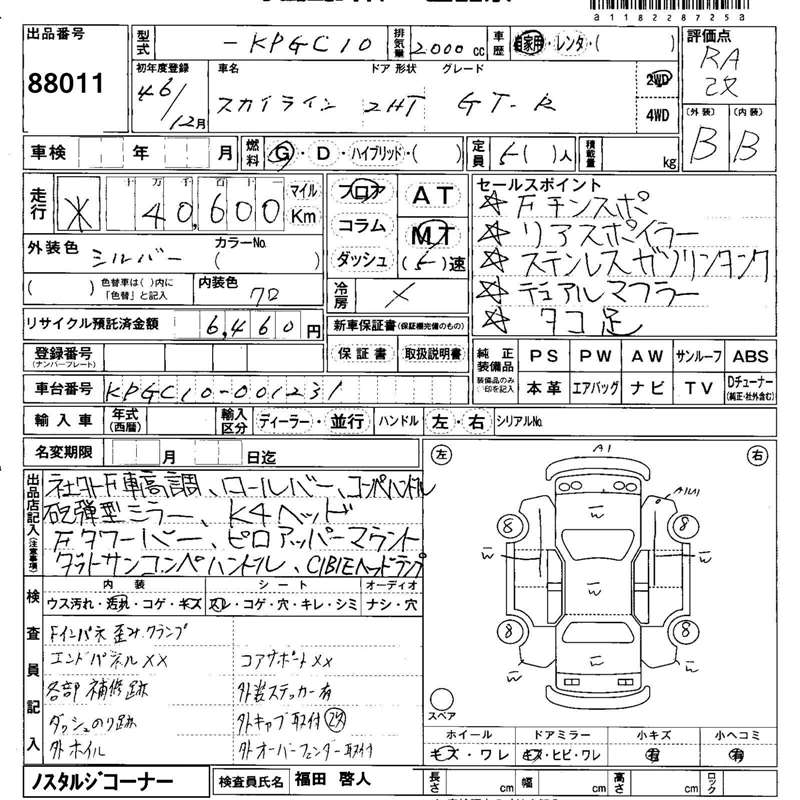 a1182287258
出品番号 88011
型式 －KPGC10 排気量 2000 cc 車歴 自家用・レンタ・( )
評価点 RA 改
初年度登録 46/12月
車名 スカイライン
ドア 形状 2HT
グレード GT-R
2WD 4WD
(外装) B (内装) B
車検 年 月
燃料 G・D・ハイブリッド・( )
定員 5( )人
積載量 kg
走行 ※ 十 万 千 百 十 一 40,600 マイル Km
フロア コラム ダッシュ
AT MT (5)速
セールスポイント
☆ F チンスポ
☆ リアスポイラー
☆ ステンレスガソリンタンク
☆ デュアルマフラー
☆ タコ足
外装色 シルバー カラーNo. ( )
( ) 色替車は( )内に「色替」と記入
内装色 クロ
冷房 ×
リサイクル預託済金額 6,460 円
新車保証書(保証欄完備のもの)
保証書 取扱説明書
登録番号 (ナンバープレート)
純正装備品 PS PW AW サンルーフ ABS
装備品のみ○印を記入 本革 エアバッグ ナビ TV Dチューナー (純正・社外含む)
車台番号 KPGC10-001231
輸入車 年式(西暦) 輸入区分 ディーラー・並行 ハンドル 左・右 シリアルNo.
名変期限 月 日迄
出品店記入(注意事項)
社外F車高調、ロールバー、コンペハンドル
砲弾型ミラー、K4ヘッド
Fタワーバー、ピロアッパーマウント
ダットサンコンペハンドル、CIBIEヘッドランプ
左 右
A1
A1U1
W W W W W W W W
8 8 8 8
スペア
検査員記入
内装 シート オーディオ
ウス汚れ・汚れ・コゲ・キズ スレ・コゲ・穴・キレ・シミ ナシ・穴
Fインパネ歪み.クランプ
エンドパネルXX コアサポートXX
各部補修跡 外装ステッカー有
ダッシュのり跡 外キャブ取付 改
外ホイル 外オーバーフェンダー取付
ホイール ドアミラー 小キズ 小ヘコミ
キズ・ワレ キズ・ヒビ・ワレ 有 有
ノスタルジコーナー 検査員氏名 福田 啓人
長さ cm 幅 cm 高さ cm ロック